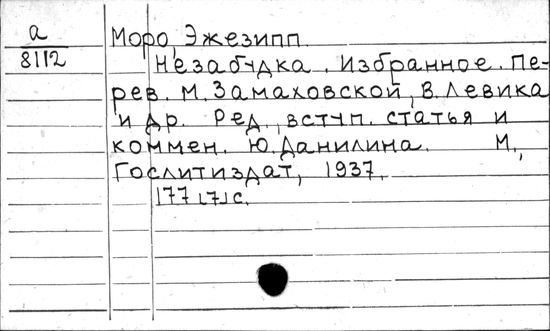 а
8112
Моро, Эжезипп.
Незабудка. Избранное. Пе-
рев. М. Замаховской, В. Левика
и др. Ред., вступ. статья и
коммен. Ю. Данилина. М.,
Гослитиздат, 1937.
177 [7] с.